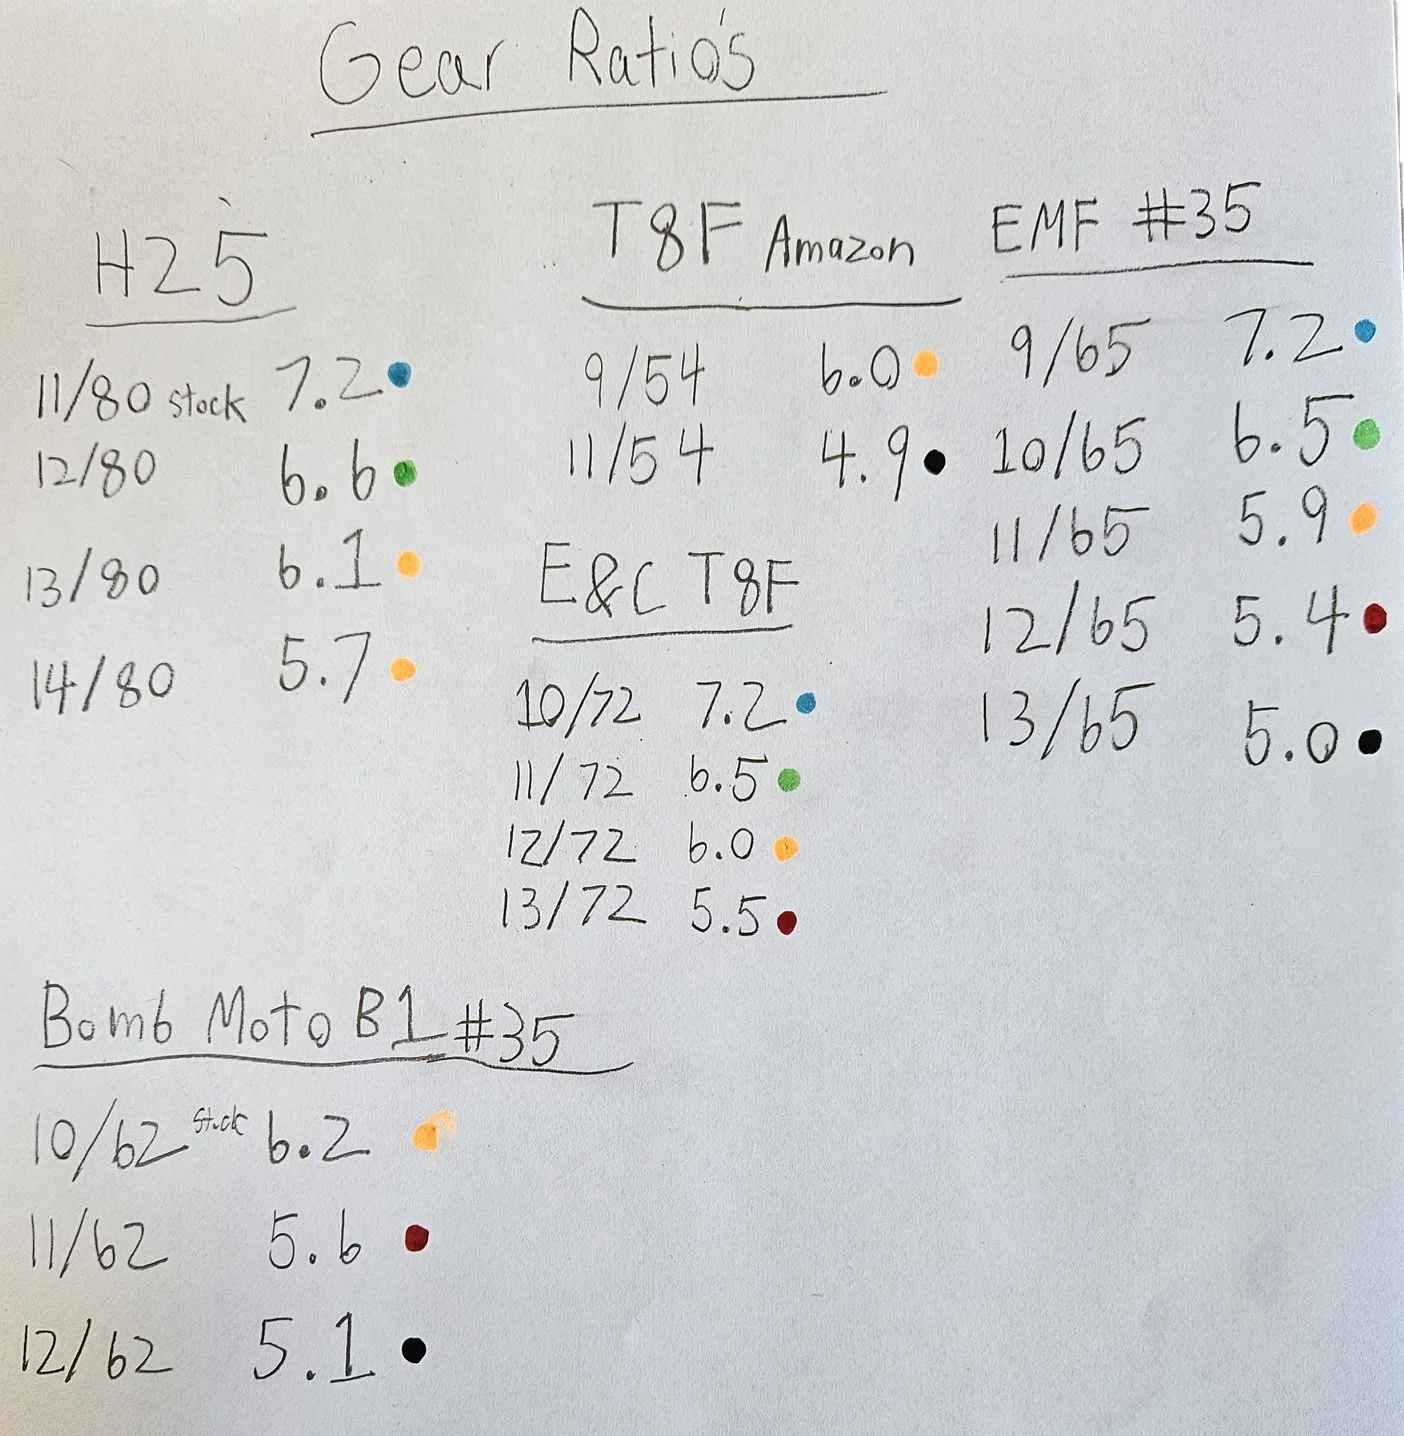 Gear Ratio's
H25
11/80 stock 7.2
12/80 6.6
13/80 6.1
14/80 5.7
T8F Amazon
9/54 6.0
11/54 4.9
E&C T8F
10/72 7.2
11/72 6.5
12/72 6.0
13/72 5.5
EMF #35
9/65 7.2
10/65 6.5
11/65 5.9
12/65 5.4
13/65 5.0
Bomb Moto B1 #35
10/62 stock 6.2
11/62 5.6
12/62 5.1